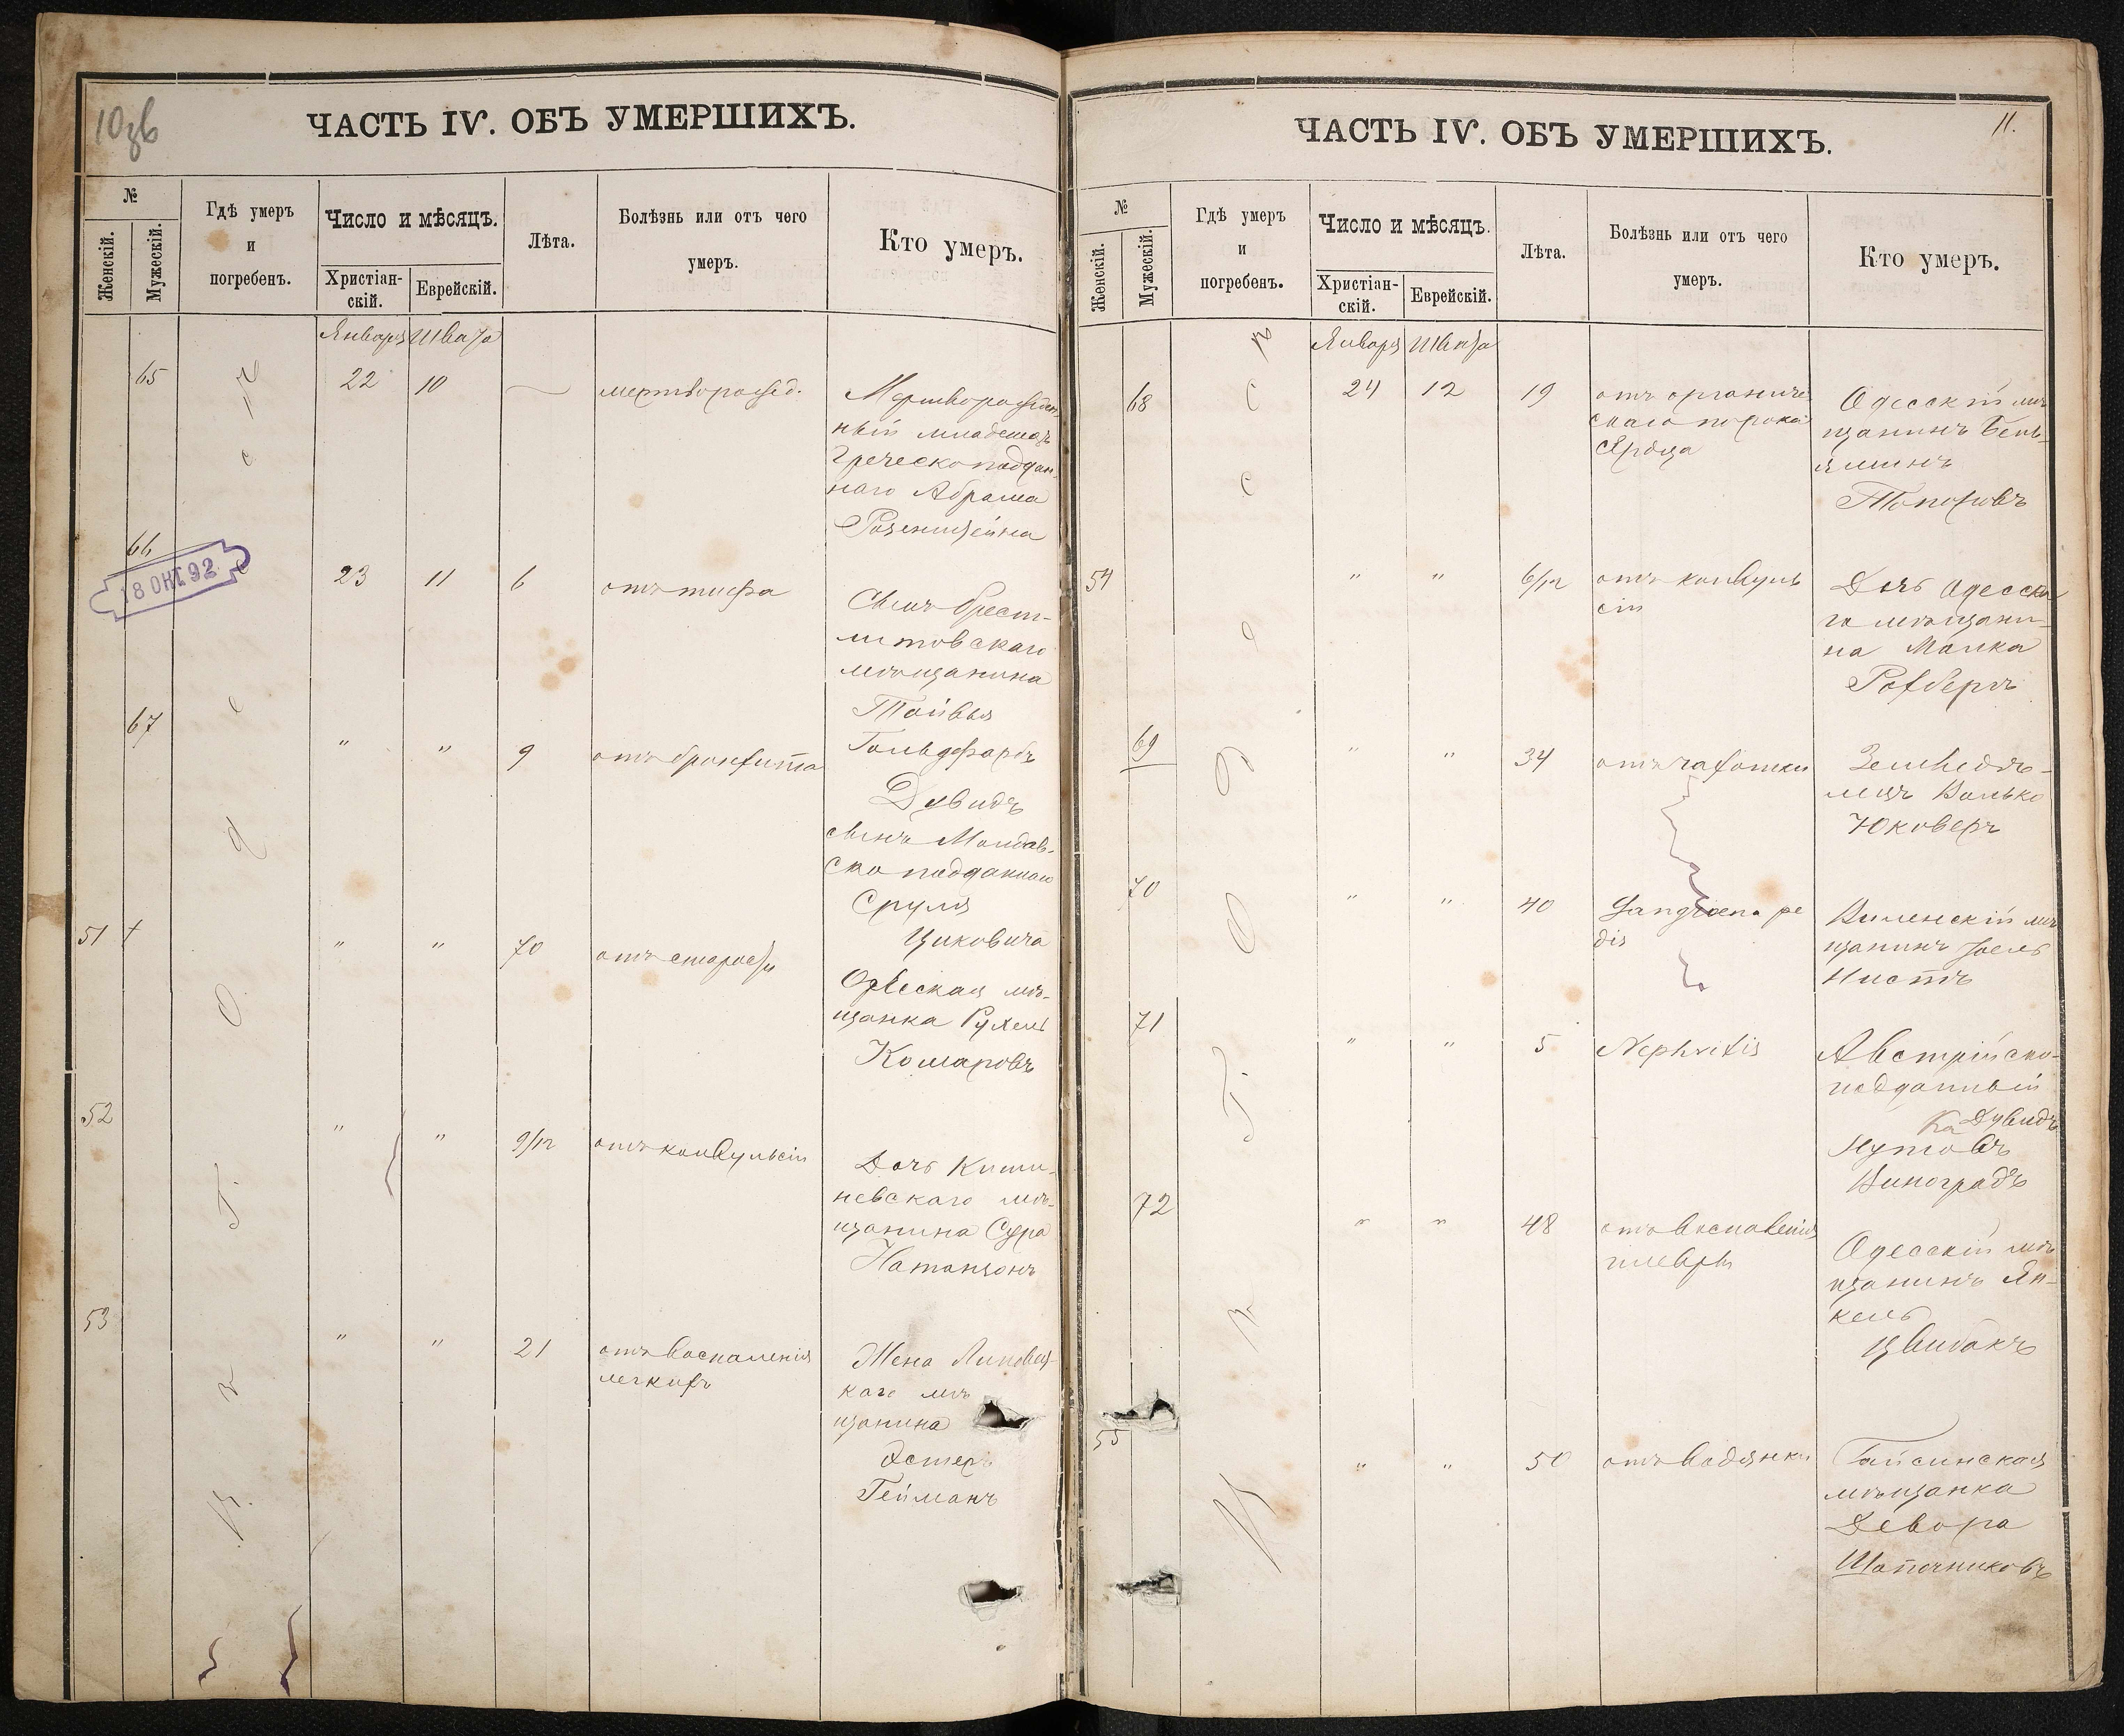 10
ЧАСТЬ IV. ОБЪ УМЕРШИХЪ.
№
Женскій.
Мужескій.
Гдѣ умеръ
и
погребенъ.
Число и мѣсяцъ.
Христіан-
скій.
Еврейскій.
Лѣта.
Болѣзнь или отъ чего
умеръ.
Кто умеръ.
Января Швата
65 22 10 — мертворожд.
Мертворожден-
ный младенецъ
Греческоподдан-
наго Абрама
Розенштейна
66 23 11 6 отъ тифа
18 ОКТ 92
Сынъ брест-
литовскаго
мѣщанина
Тойвья
Гольдфарбъ
67 " " 9 отъ бронхита
Дувидъ
сынъ Молдав-
скоподданнаго
Сруля
Цыковича
51 " " 70 отъ старости
Одесская мѣ-
щанка Рухель
Комаровъ
52 " " 9/12 отъ конвульсіи
Дочь Киши-
невскаго мѣ-
щанина Сура
Натанзонъ
53 " " 21 отъ воспаленія
легкихъ
Жена Липовец-
каго мѣ
щанина
Эстеръ
Гейманъ
въ г. Одессѣ
11.
ЧАСТЬ IV. ОБЪ УМЕРШИХЪ.
№
Женскій.
Мужескій.
Гдѣ умеръ
и
погребенъ.
Число и мѣсяцъ.
Христіан-
скій.
Еврейскій.
Лѣта.
Болѣзнь или отъ чего
умеръ.
Кто умеръ.
Января Швата
68 24 12 19 отъ органиче
скаго порока
сердца
Одесскій мѣ
щанинъ Бень-
яминъ
Топоровъ
54 " " 6/12 отъ конвуль
сіи
Дочь Одесска
го мѣщани-
на Малка
Ротберъ
69 " " 34 отъ чахотки
Земледѣ-
лецъ Волько
Юковеръ
70 " " 40 Gangraena pe
dis
Виленскій мѣ
щанинъ Іосель
Нистъ
71 " " 5 Nephritis
Австрійско-
подданный
Дувидъ
Нутовъ
Виноградъ
72 " " 48 отъ воспаленія
плевры
Одесскій мѣ
щанинъ Ян-
кель
Цвибакъ
55 " " 50 отъ водянки
Гайсинская
мѣщанка
Девора
Шапочниковъ
въ г. Одессѣ